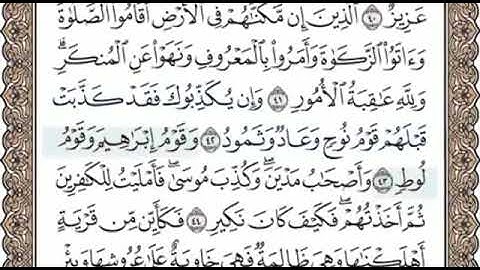 عَزِيزٌ ٤٠ ٱلَّذِينَ إِن مَّكَّنَّـٰهُمْ فِى ٱلْأَرْضِ أَقَامُوا۟ ٱلصَّلَوٰةَ
وَءَاتَوُا۟ ٱلزَّكَوٰةَ وَأَمَرُوا۟ بِٱلْمَعْرُوفِ وَنَهَوْا۟ عَنِ ٱلْمُنكَرِ ۗ
وَلِلَّهِ عَـٰقِبَةُ ٱلْأُمُورِ ٤١ وَإِن يُكَذِّبُوكَ فَقَدْ كَذَّبَتْ
قَبْلَهُمْ قَوْمُ نُوحٍ وَعَادٌ وَثَمُودُ ٤٢ وَقَوْمُ إِبْرَٰهِيمَ وَقَوْمُ
لُوطٍ ٤٣ وَأَصْحَـٰبُ مَدْيَنَ ۖ وَكُذِّبَ مُوسَىٰ ۖ فَأَمْلَيْتُ لِلْكَـٰفِرِينَ
ثُمَّ أَخَذْتُهُمْ ۖ فَكَيْفَ كَانَ نَكِيرِ ٤٤ فَكَأَيِّن مِّن قَرْيَةٍ
أَهْلَكْنَـٰهَا وَهِىَ ظَالِمَةٌ فَهِىَ خَاوِيَةٌ عَلَىٰ عُرُوشِهَا وَبِئْرٍ